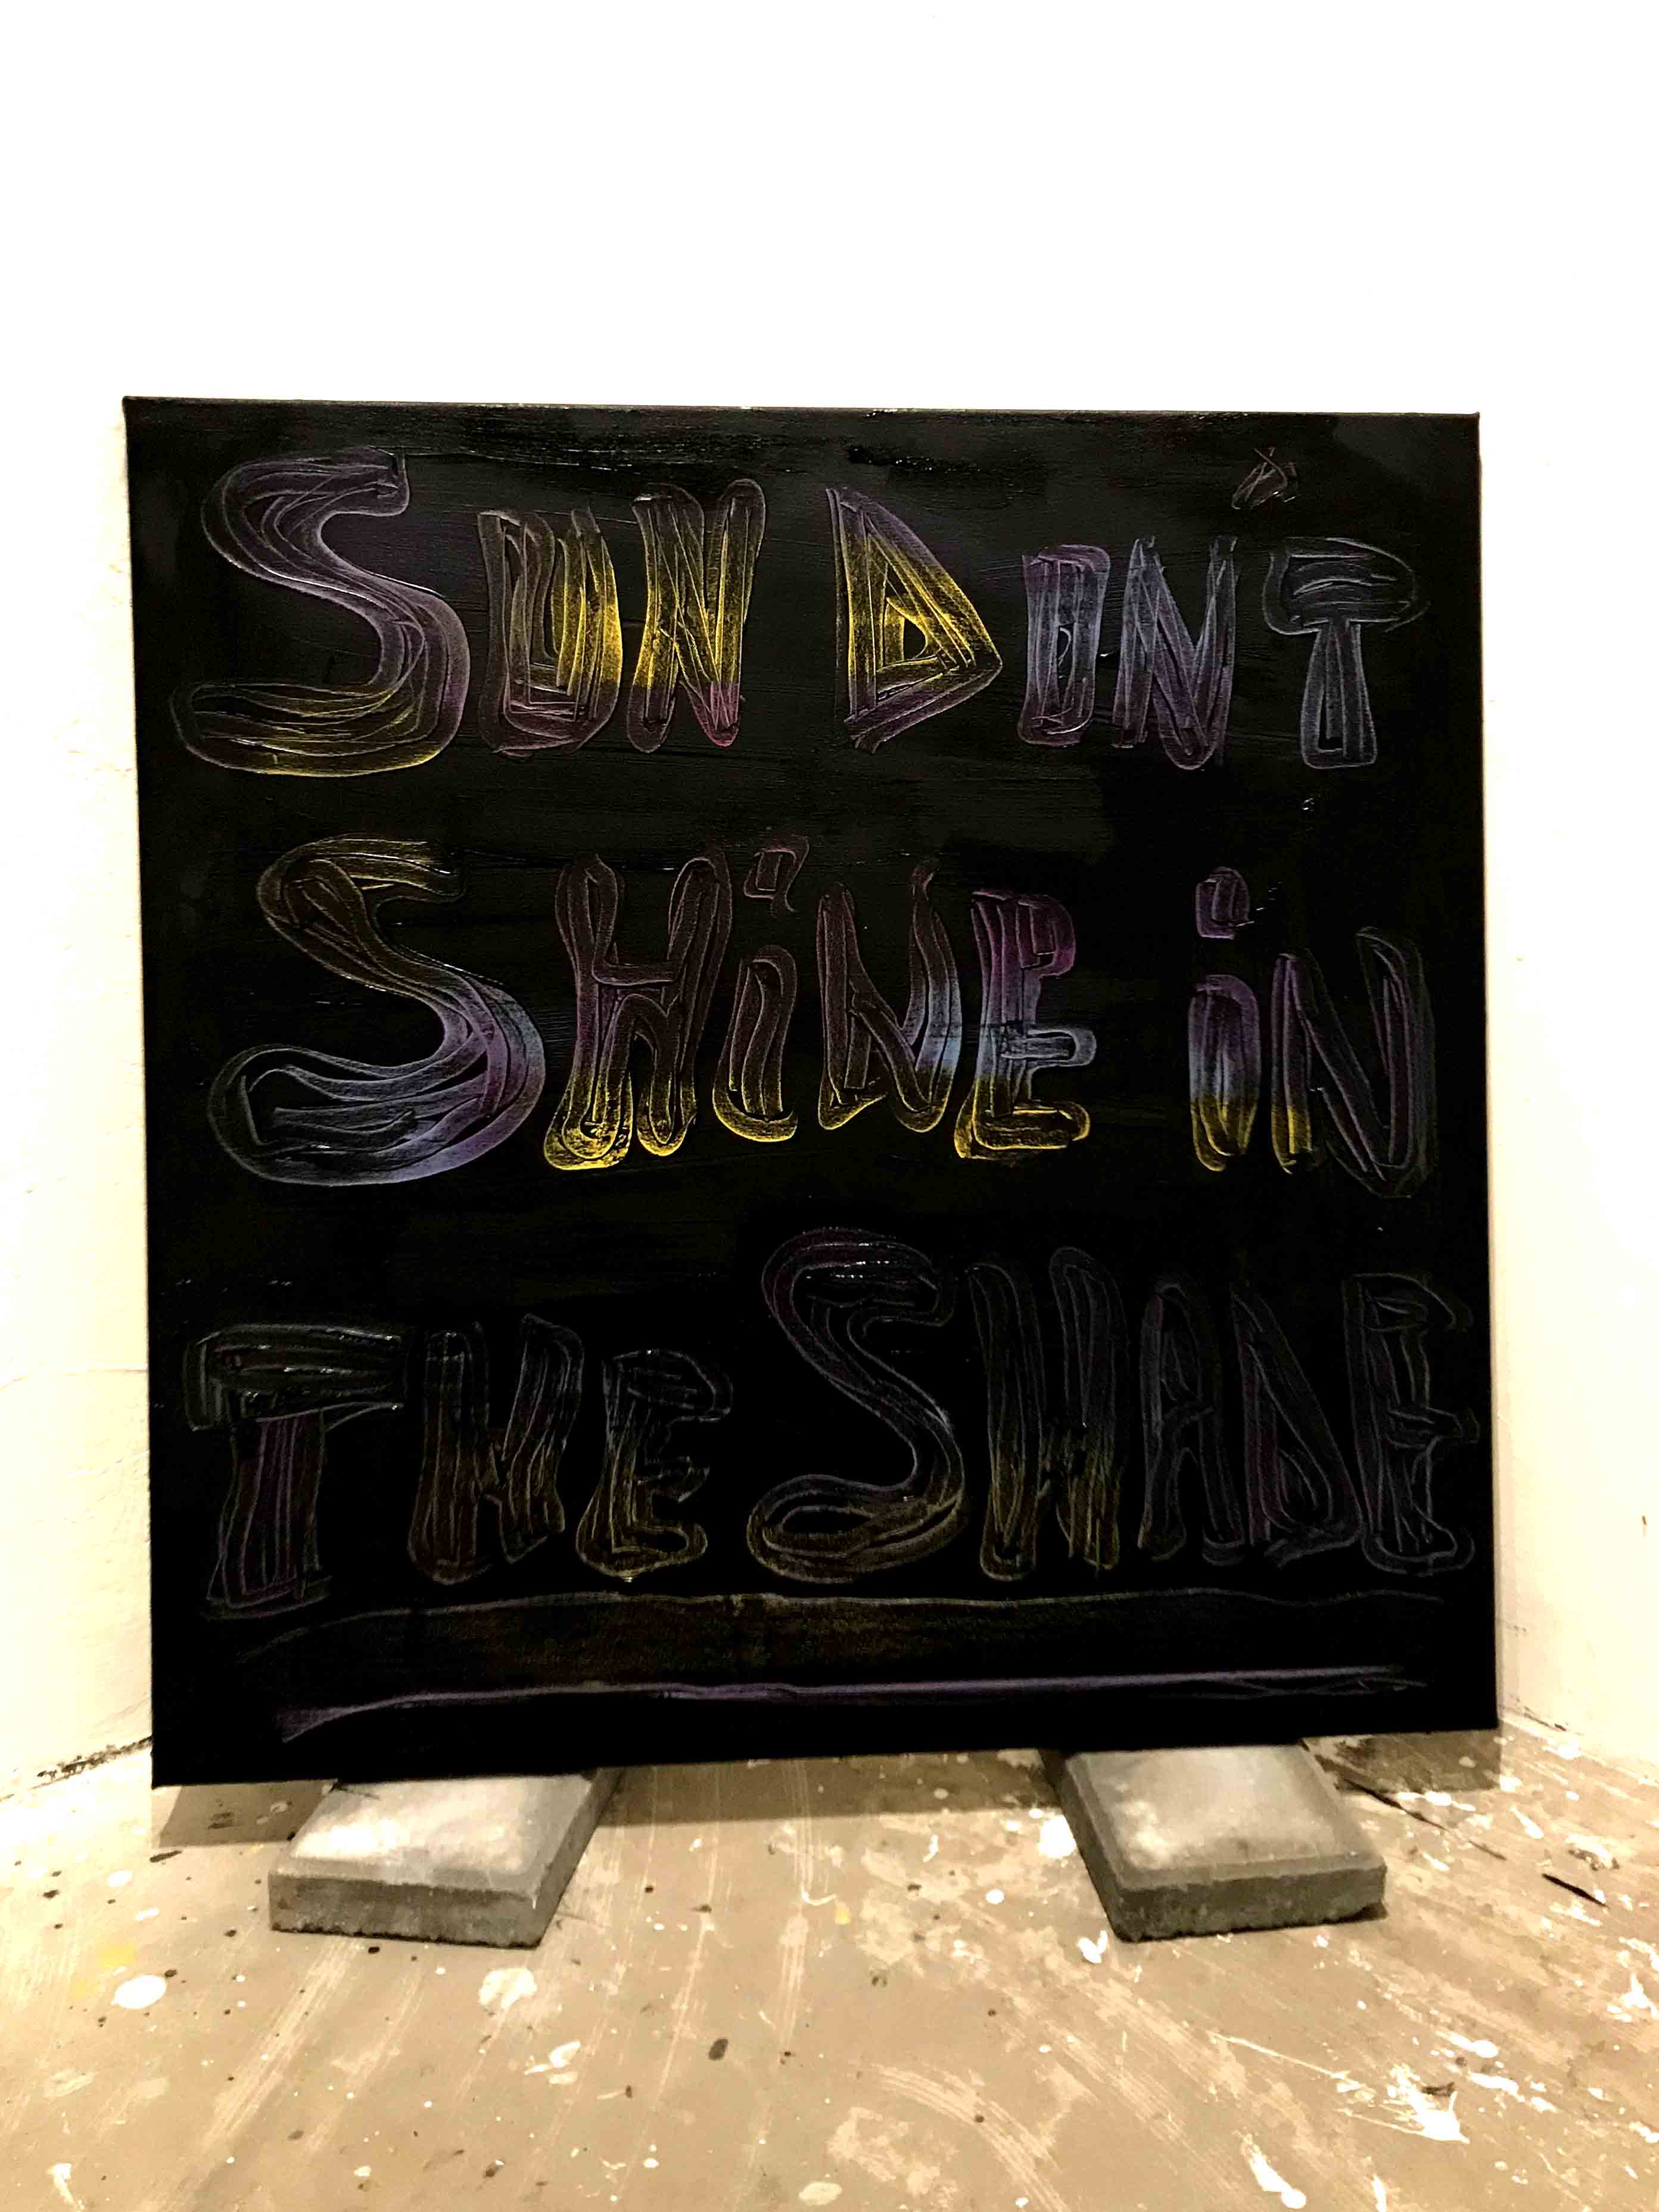 SUN DON'T
SHiNE iN
THE SHADE